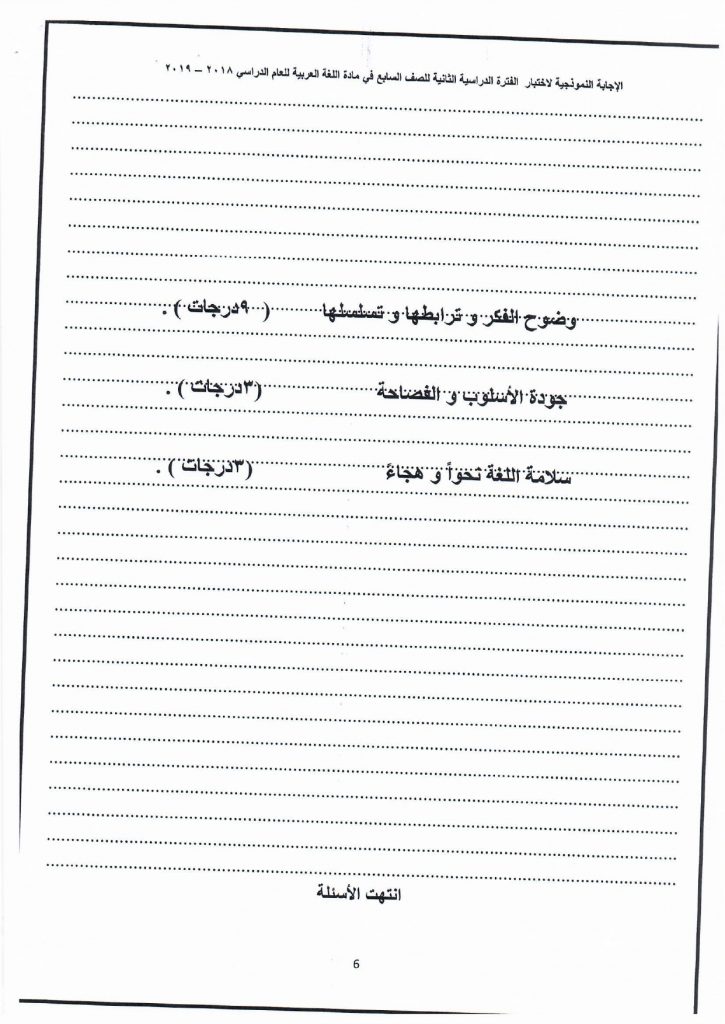 الإجابة النموذجية لاختبار الفترة الدراسية الثانية للصف السابع في مادة اللغة العربية للعام الدراسي ٢٠١٨ – ٢٠١٩
وضوح الفكر و ترابطها و تسلسلها ( ٩درجات ) .
جودة الأسلوب و الفصاحة (٣درجات ) .
سلامة اللغة نحواً و هجاءً (٣درجات ) .
انتهت الأسئلة
6